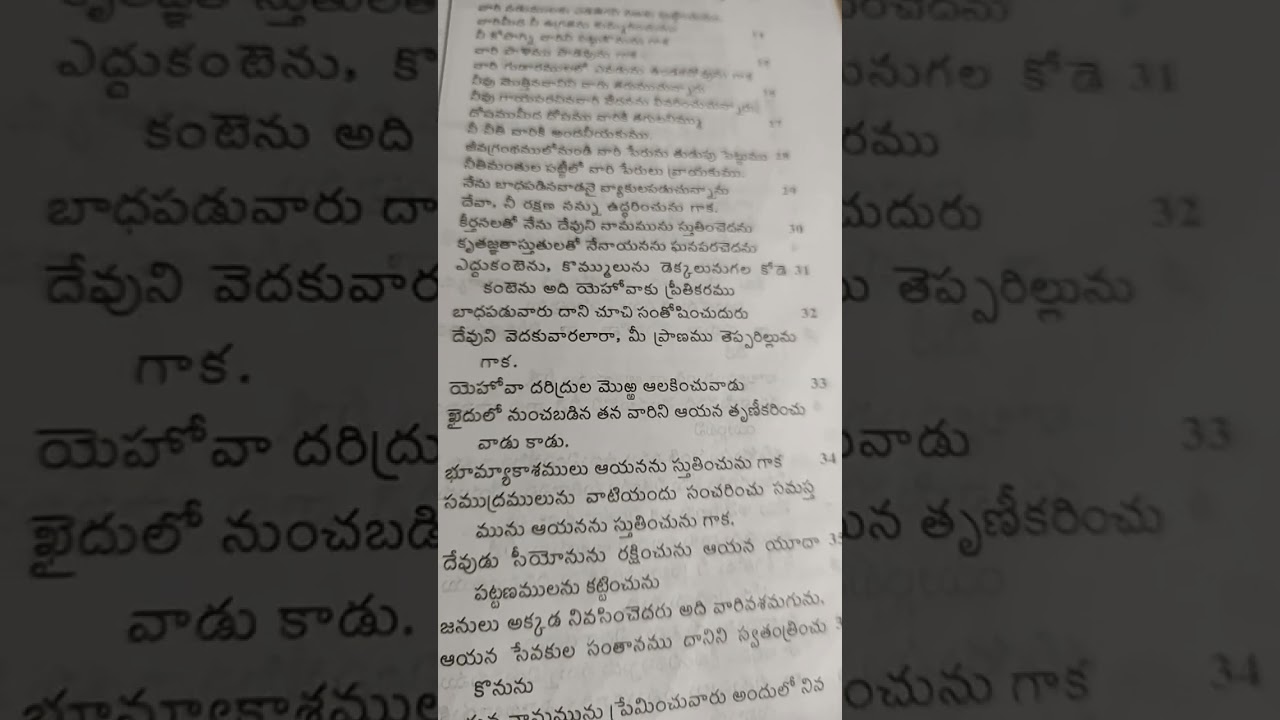 నీ కోపాగ్ని వారిని పట్టుకొనును గాక
వారి పాళెము పాడవును గాక
వారి గుడారములలో ఎవడును ఉండకపోవును గాక
నీవు మొత్తినవానిని వారు తరుముచున్నారు
నీవు గాయపరచినవారి వేదనను వివరించుచున్నారు
దోషముమీద దోషము వారికి తగులనిమ్ము 27
నీ నీతి వారికి అందనీయకుము.
జీవగ్రంథములోనుండి వారి పేరును తుడుపు పెట్టుము 28
నీతిమంతుల పట్టీలో వారి పేరులు వ్రాయకుము.
నేను బాధపడినవాడనై వ్యాకులపడుచున్నాను 29
దేవా, నీ రక్షణ నన్ను ఉద్ధరించును గాక.
కీర్తనలతో నేను దేవుని నామమును స్తుతించెదను 30
కృతజ్ఞతాస్తుతులతో నేనాయనను ఘనపరచెదను
ఎద్దుకంటెను, కొమ్ములును డెక్కలునుగల కోడె 31
కంటెను అది యెహోవాకు ప్రీతికరము
బాధపడువారు దాని చూచి సంతోషించుదురు 32
దేవుని వెదకువారలారా, మీ ప్రాణము తెప్పరిల్లును
గాక.
యెహోవా దరిద్రుల మొఱ్ఱ ఆలకించువాడు 33
ఖైదులో నుంచబడిన తన వారిని ఆయన తృణీకరించు
వాడు కాడు.
భూమ్యాకాశములు ఆయనను స్తుతించును గాక 34
సముద్రములును వాటియందు సంచరించు సమస్త
మును ఆయనను స్తుతించును గాక.
దేవుడు సీయోనును రక్షించును ఆయన యూదా
పట్టణములను కట్టించును
జనులు అక్కడ నివసించెదరు అది వారివశమగును.
ఆయన సేవకుల సంతానము దానిని స్వతంత్రించు
కొనును
నామమును ప్రేమించువారు అందులో నివ